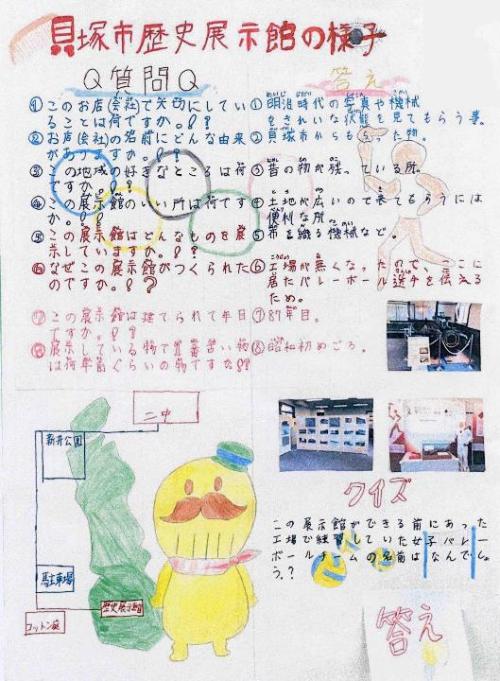 貝塚市歴史展示館の様子
Q質問Q
答え
①このお店(会社)で大切にしてい
ることは何ですか。??
②お店(会社)の名前にどんな由来
がありますか。??
③この地域の好きなところは何
ですか。??
④この展示館のいい所は何です
か。??
⑤この展示館はどんなものを展
示していますか。??
⑥なぜこの展示館がつくられた
のですか。??
⑦この展示館は建てられて年目
ですか。??
⑧展示している物で1番古い物
は何年前ぐらいの物ですか??
①明治時代の写真や機械
をきれいな状態を見てもらう事。
②貝塚市からもらった物。
③昔の物が残っている所。
④土地が広いので来てもらうには
便利な所。
⑤布を織る機械など。
⑥工場が無くなったので、ここに
居たバレーボール選手を伝える
ため。
⑦87年目。
⑧昭和初めごろ。
二中
新井公園
駐車場
歴史展示館
コットン庭
クイズ
この展示館ができる前にあった
工場で練習していた女子バレー
ボールチームの名前はなんでしょ
う。?
答え